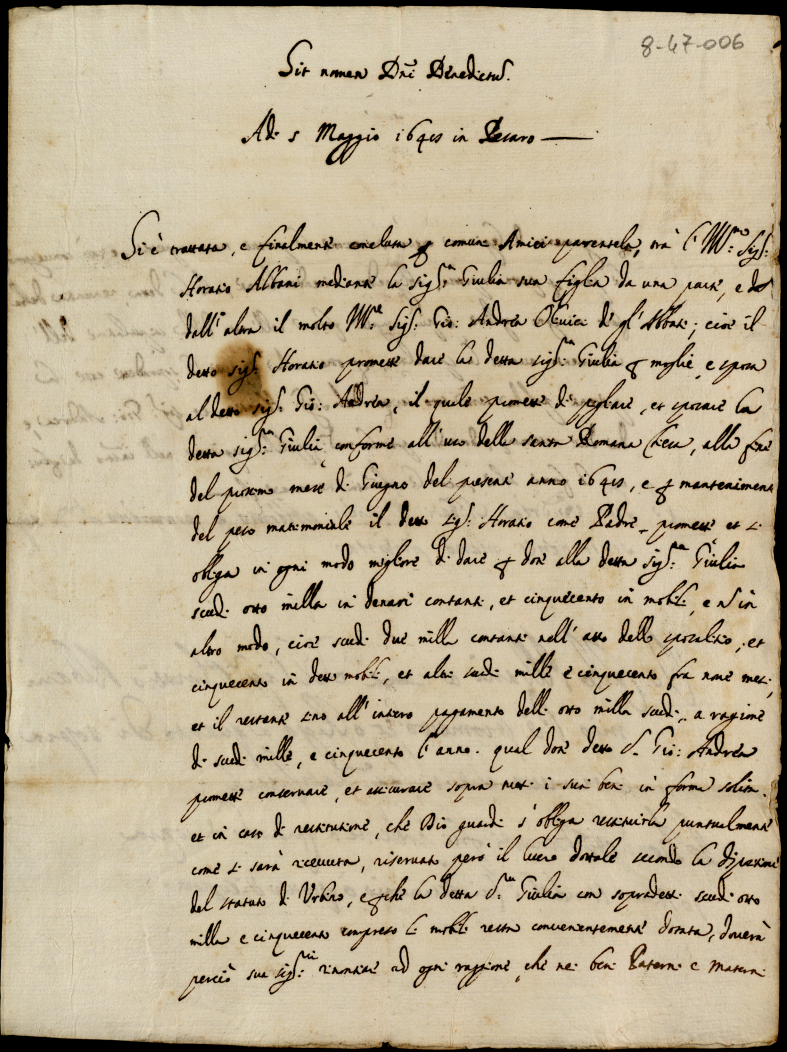 8-47-006
Sit nomen Dñi Benedictũ.
Adi 5 Maggio 1645 in Pesaro
Si è trattata, e finalmente conclusa p comuni Amici parentela, trà l' Ill.mo Sig.r
Horatio Albani mediante la sig.ra Giulia sua figlia da una parte, e
dall'altra il molto Ill.re Sig.r Gio: Andrea Olivieri de gl'Abbati; cioè il
detto sig.r Horatio promette dare la detta sig.ra Giulia p moglie, e sposa
al detto sig.r Gio: Andrea, il quale promette di pigliare, et sposare la
detta sig.ra Giulia conforme all'uso della santa Romana Chiesa, alla fine
del prossimo mese di Giugno del presente anno 1645, e p mantenimento
del peso matrimoniale il detto sig.r Horatio come Padre promette et si
obliga in ogni modo migliore di dare p dote alla detta sig.ra Giulia
scudi otto milla in denari contanti, et cinquecento in mobili, e nõ in
altro modo, cioè scudi due milla contanti nell'atto dello sposalitio, et
cinquecento in detti mobili, et altri scudi mille e cinquecento fra nove mesi,
et il restante sino all'intiero pagamento delli otto milla scudi, a ragione
di scudi mille, e cinquecento l'anno. qual dote detto S. Gio: Andrea
promette conservare, et assicurare sopra tutti i suoi beni in forma solita.
et in caso di restitutione, che Dio guardi s'obliga restituirla puntualmente
come si sarà ricevuta, riservato però il lucro dottale secondo la dispositione
del statuto di Urbino, e pche la detta S.ra Giulia con sopradetti scudi otto
milla e cinquecento compreso li mobili resta convenientemente dotata, doverà
perciò sua sig.ria rinontiare ad ogni raggione, che ne beni Paterni e Materni